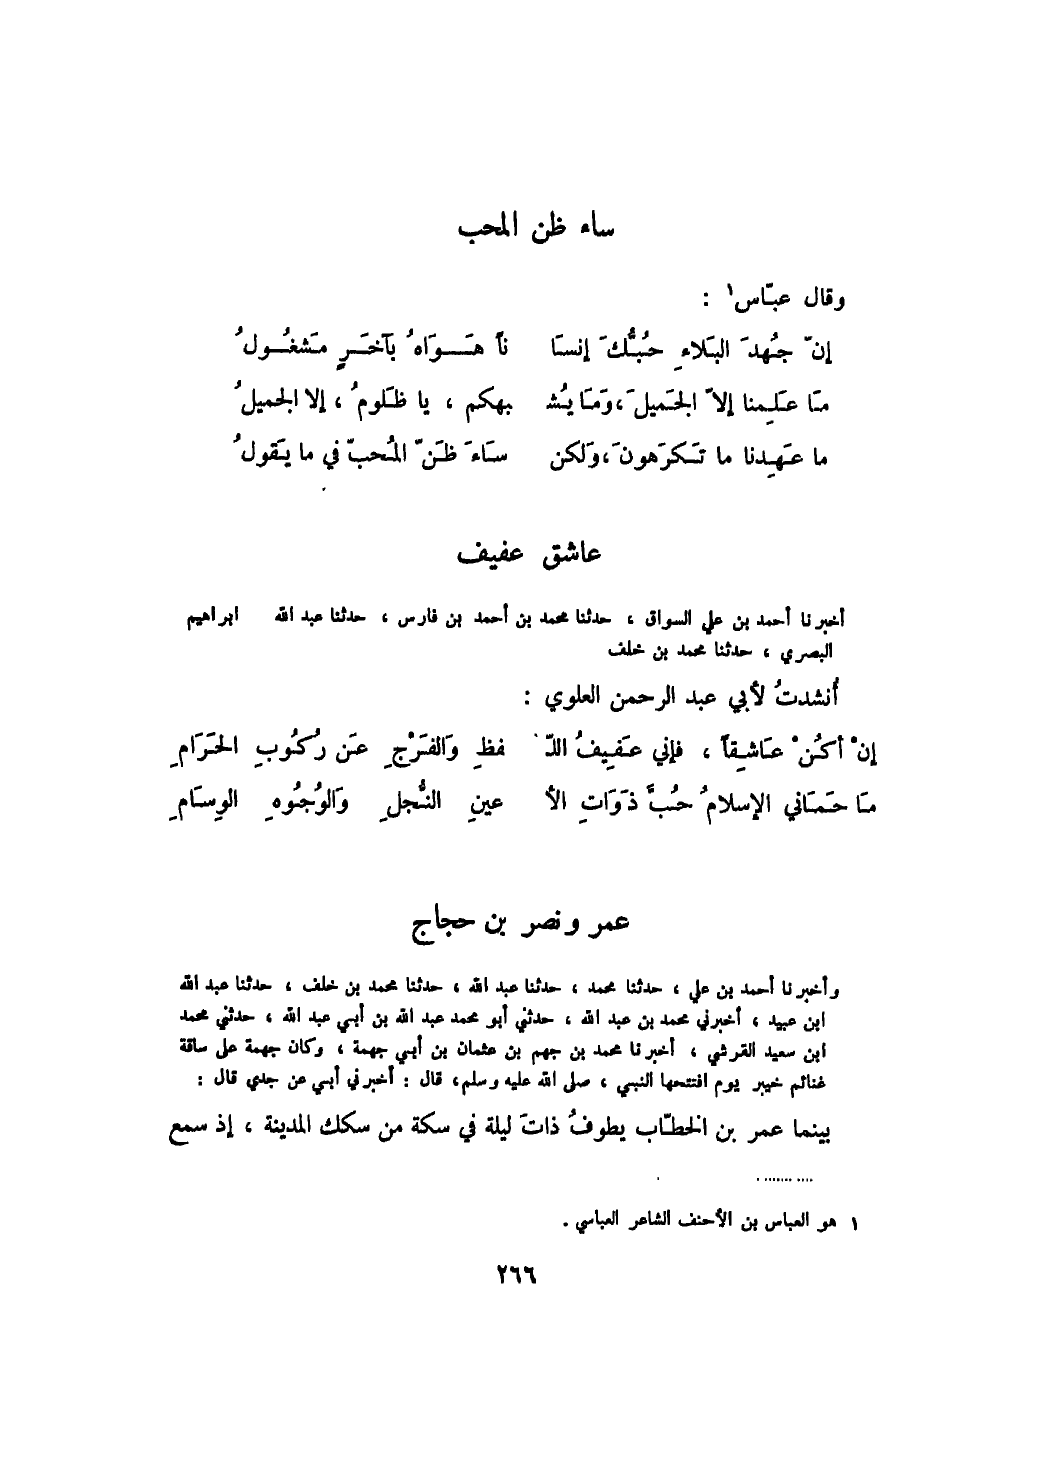 ساء ظن المحب
وقال عبّاس١ :
إنّ جُهدَ البَلاءِ حُبُّكَ إنسَا نًا هَوَاهُ بآخَرٍ مَشغُولُ
مَا عَلِمنا إلاّ الجَميلَ، وَمَا يُشـ بهكم ، يا ظَلومُ ، إلا الجميلُ
ما عَهِدنا ما تَكرَهونَ، وَلكن سَاءَ ظَنّ المُحبّ في ما يَقولُ
عاشق عفيف
أخبرنا أحمد بن علي السواق ، حدثنا محمد بن أحمد بن فارس ، حدثنا عبد الله ابراهيم
البصري ، حدثنا محمد بن خلف
أُنشدتُ لأبي عبد الرحمن العلوي :
إنْ أكُنْ عَاشِقاً ، فإني عَفِيفُ اللّـ فظِ وَالفَرْجِ عَن رُكُوبِ الحَرَامِ
مَا حَمَاني الإسلامُ حُبَّ ذَوَاتِ الأ عينِ النُّجلِ وَالوُجُوهِ الوِسَامِ
عمر ونصر بن حجاج
وأخبرنا أحمد بن علي ، حدثنا محمد ، حدثنا عبد الله ، حدثنا محمد بن خلف ، حدثنا عبد الله
ابن عبيد ، أخبرني محمد بن عبد الله ، حدثني أبو محمد عبد الله بن أبي عبد الله ، حدثني محمد
ابن سعيد القرشي ، أخبرنا محمد بن جهم بن عثمان بن أبي جهمة ، وكان جهمة على ساقة
غنائم خيبر يوم افتتحها النبي ، صلى الله عليه وسلم، قال : أخبرني أبي عن جدي قال :
بينما عمر بن الخطّاب يطوفُ ذاتَ ليلة في سكة من سكك المدينة ، إذ سمع
١ هو العباس بن الأحنف الشاعر العباسي .
٢٦٦